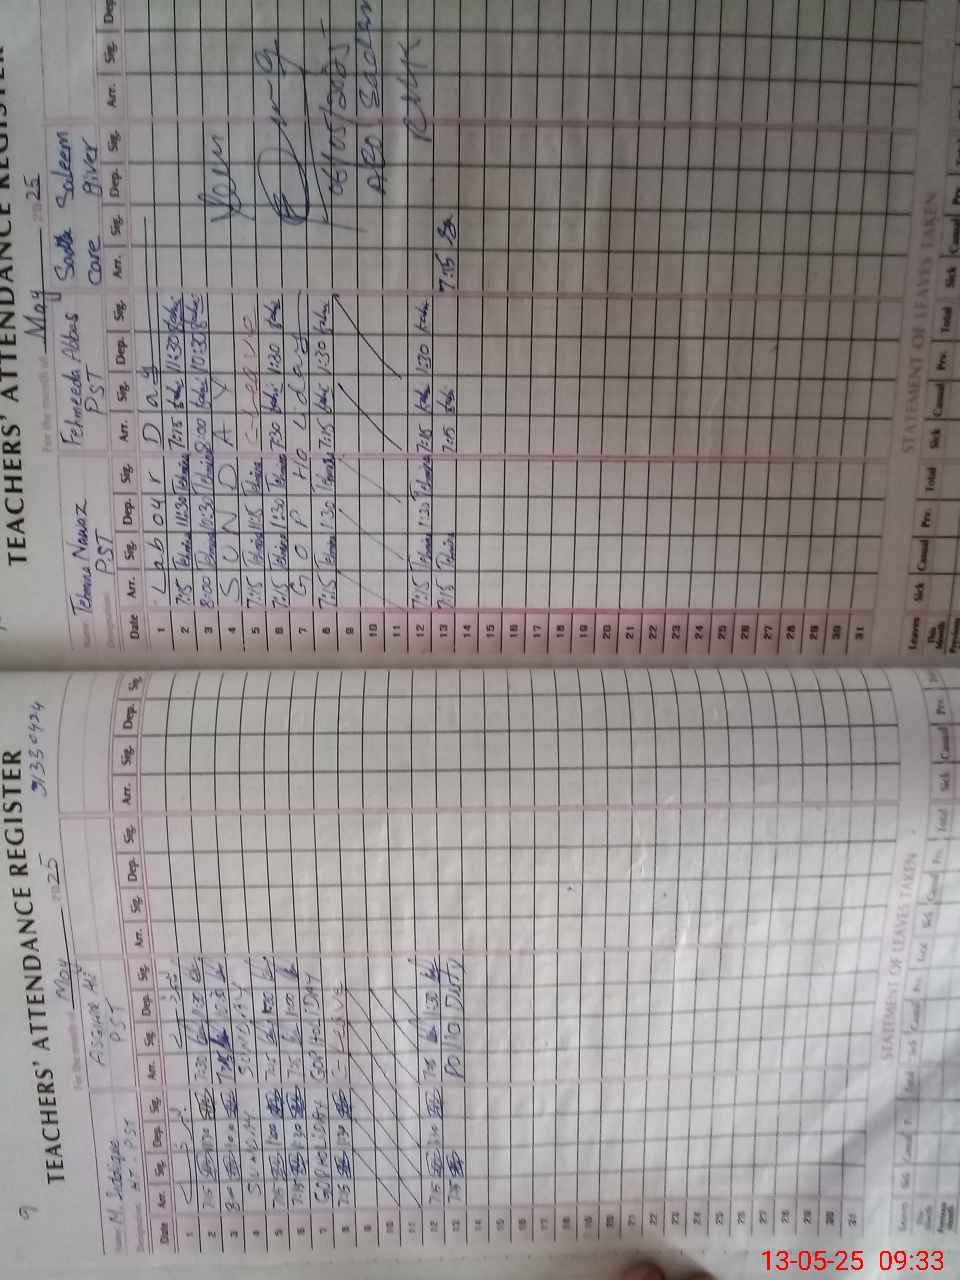 TEACHERS' ATTENDANCE REGISTER
9
91330424
For the month of May 2025
Name M. Siddique Aisama Ali
Designation PST PST
Date Arr. Sig. Dep. Sig. Arr. Sig. Dep. Sig. Arr. Sig. Dep. Sig. Arr. Sig. Dep. Sig.
1
2 7:15 11:30 7:30 11:30
3 8:00 7:15 10:30
4 SUNDAY SUNDAY
5 7:15 1:00 7:15 1:00
6 7:15 1:30 7:15 1:00
7 GOP HOLIDAY GOP HOLIDAY
8 7:15 1:30 C-Leave
9
10
11
12 7:15 1:30 7:15 1:30
13 7:15 POLIO DUTY
14
15
16
17
18
19
20
21
22
23
24
25
26
27
28
29
30
31
STATEMENT OF LEAVES TAKEN
Leaves Sick Casual Prv. Total Sick Casual Prv. Total Sick Casual Prv. Total Sick Casual Prv.
This Month
Previous
TEACHERS' ATTENDANCE REGISTER
For the month of May 2025
Name Tehmina Nawaz Fehmeeda Abbas Sadia Saleem
Designation PST PST Care giver
Date Arr. Sig. Dep. Sig. Arr. Sig. Dep. Sig. Arr. Sig. Dep. Sig. Arr. Sig. Dep.
1 Labour Day
2 7:15 Tehmina 11:30 Tehmina 7:15 11:30
3 8:00 Tehmina 10:30 Tehmina 8:00 10:30
4 SUNDAY
5 7:15 Tehmina 1:15 Tehmina C-Leave
6 7:15 Tehmina 1:30 Tehmina 7:30 1:30
7 GOP Holiday
8 7:15 Tehmina 1:30 Tehmina 7:15 1:30
06/05/2025
9
10
11
12 7:15 Tehmina 1:30 Tehmina 7:15 1:30
13 7:15 Tehmina 7:15 7:15
14
15
16
17
18
19
20
21
22
23
24
25
26
27
28
29
30
31
STATEMENT OF LEAVES TAKEN
Leaves Sick Casual Prv. Total Sick Casual Prv. Total Sick Casual Prv.
This Month
Previous
13-05-25 09:33